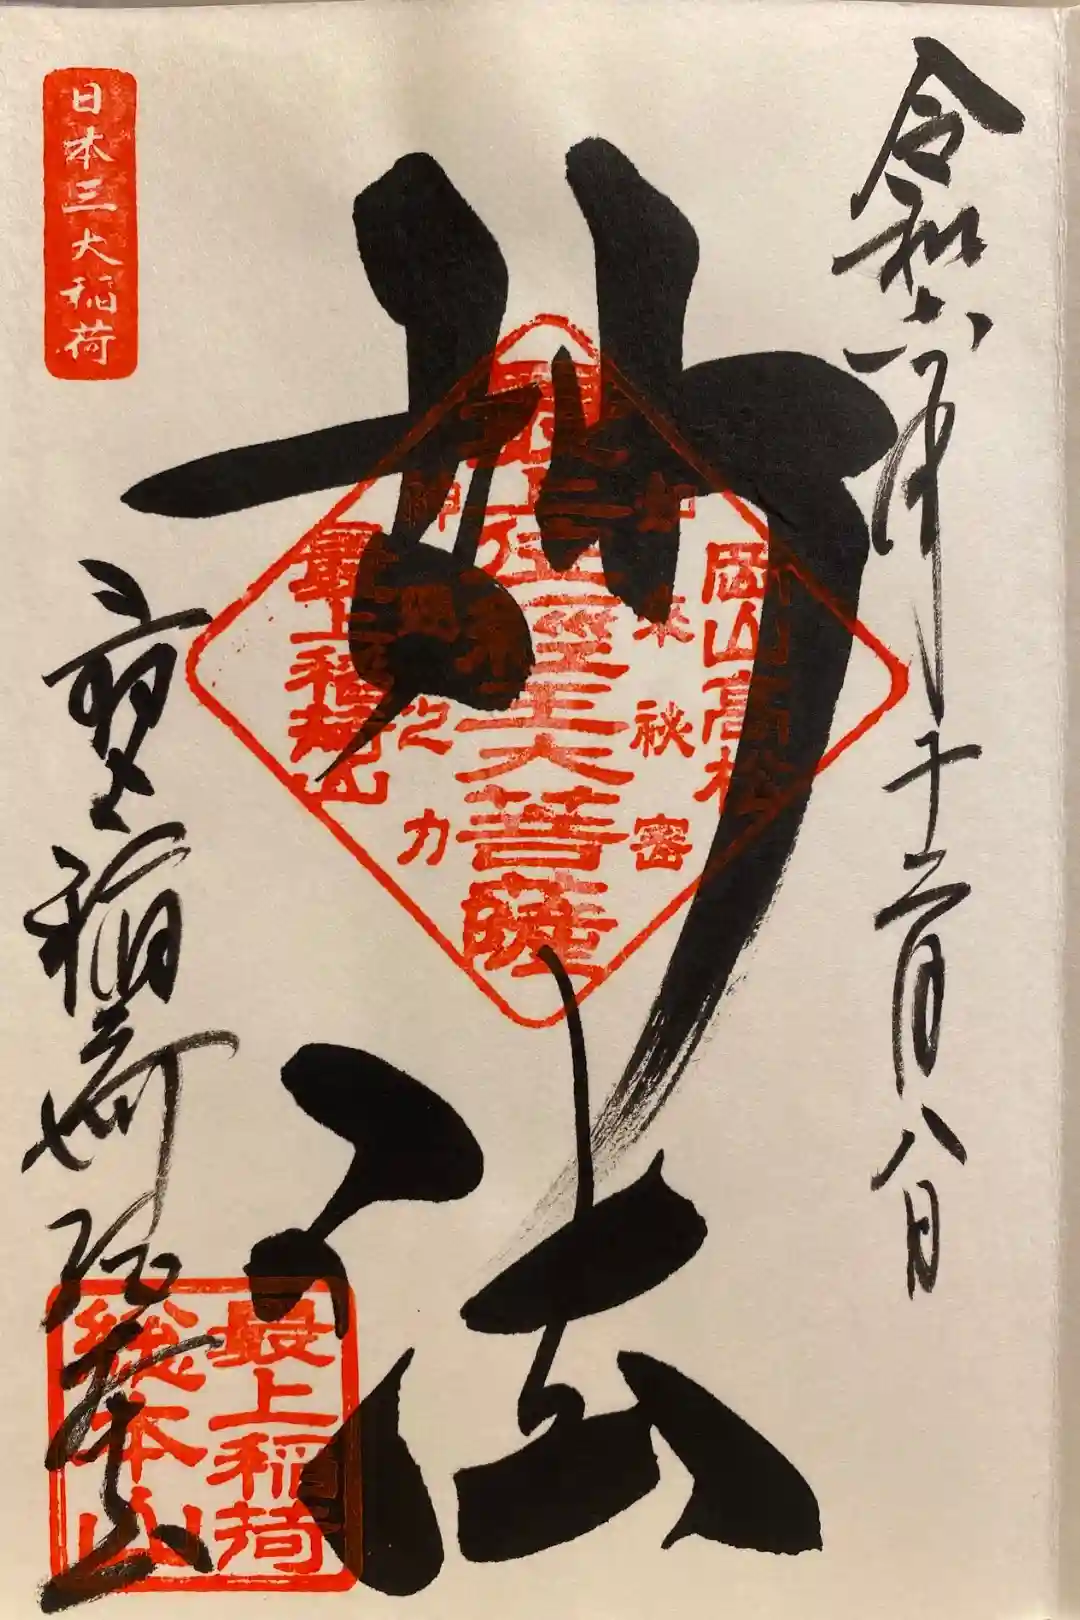 令和六年十二月八日
妙法
岡山高松
如来秘密
最上位経王大菩薩
神通之力
最上稲荷山
日本三大稲荷
最上稲荷
総本山